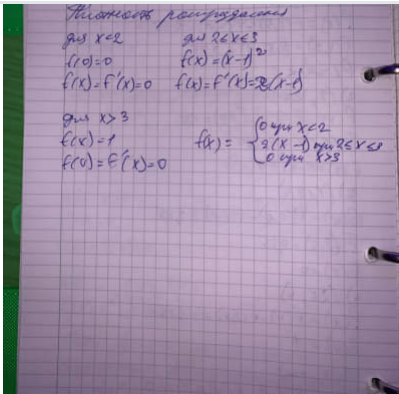 Плотность распределения
для x<2
f(0)=0
f(x)=F'(x)=0
для 2≤x≤3
f(x)=(x-1)²
f(x)=F'(x)=2(x-1)
для x>3
f(x)=1
f(0)=F'(x)=0
f(x)= {0 при x<2
2(x-1) при 2≤x≤3
0 при x>3